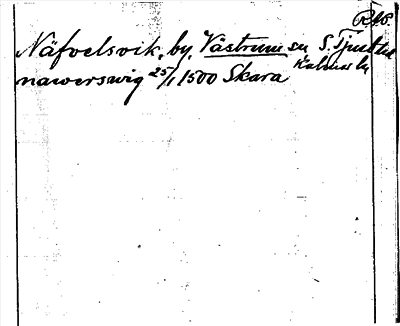 RAp.
Näfvelsvik, by, Västrum sn S. Tjust hd
Kalmar l.
nawerswig 25/1 1500 Skara